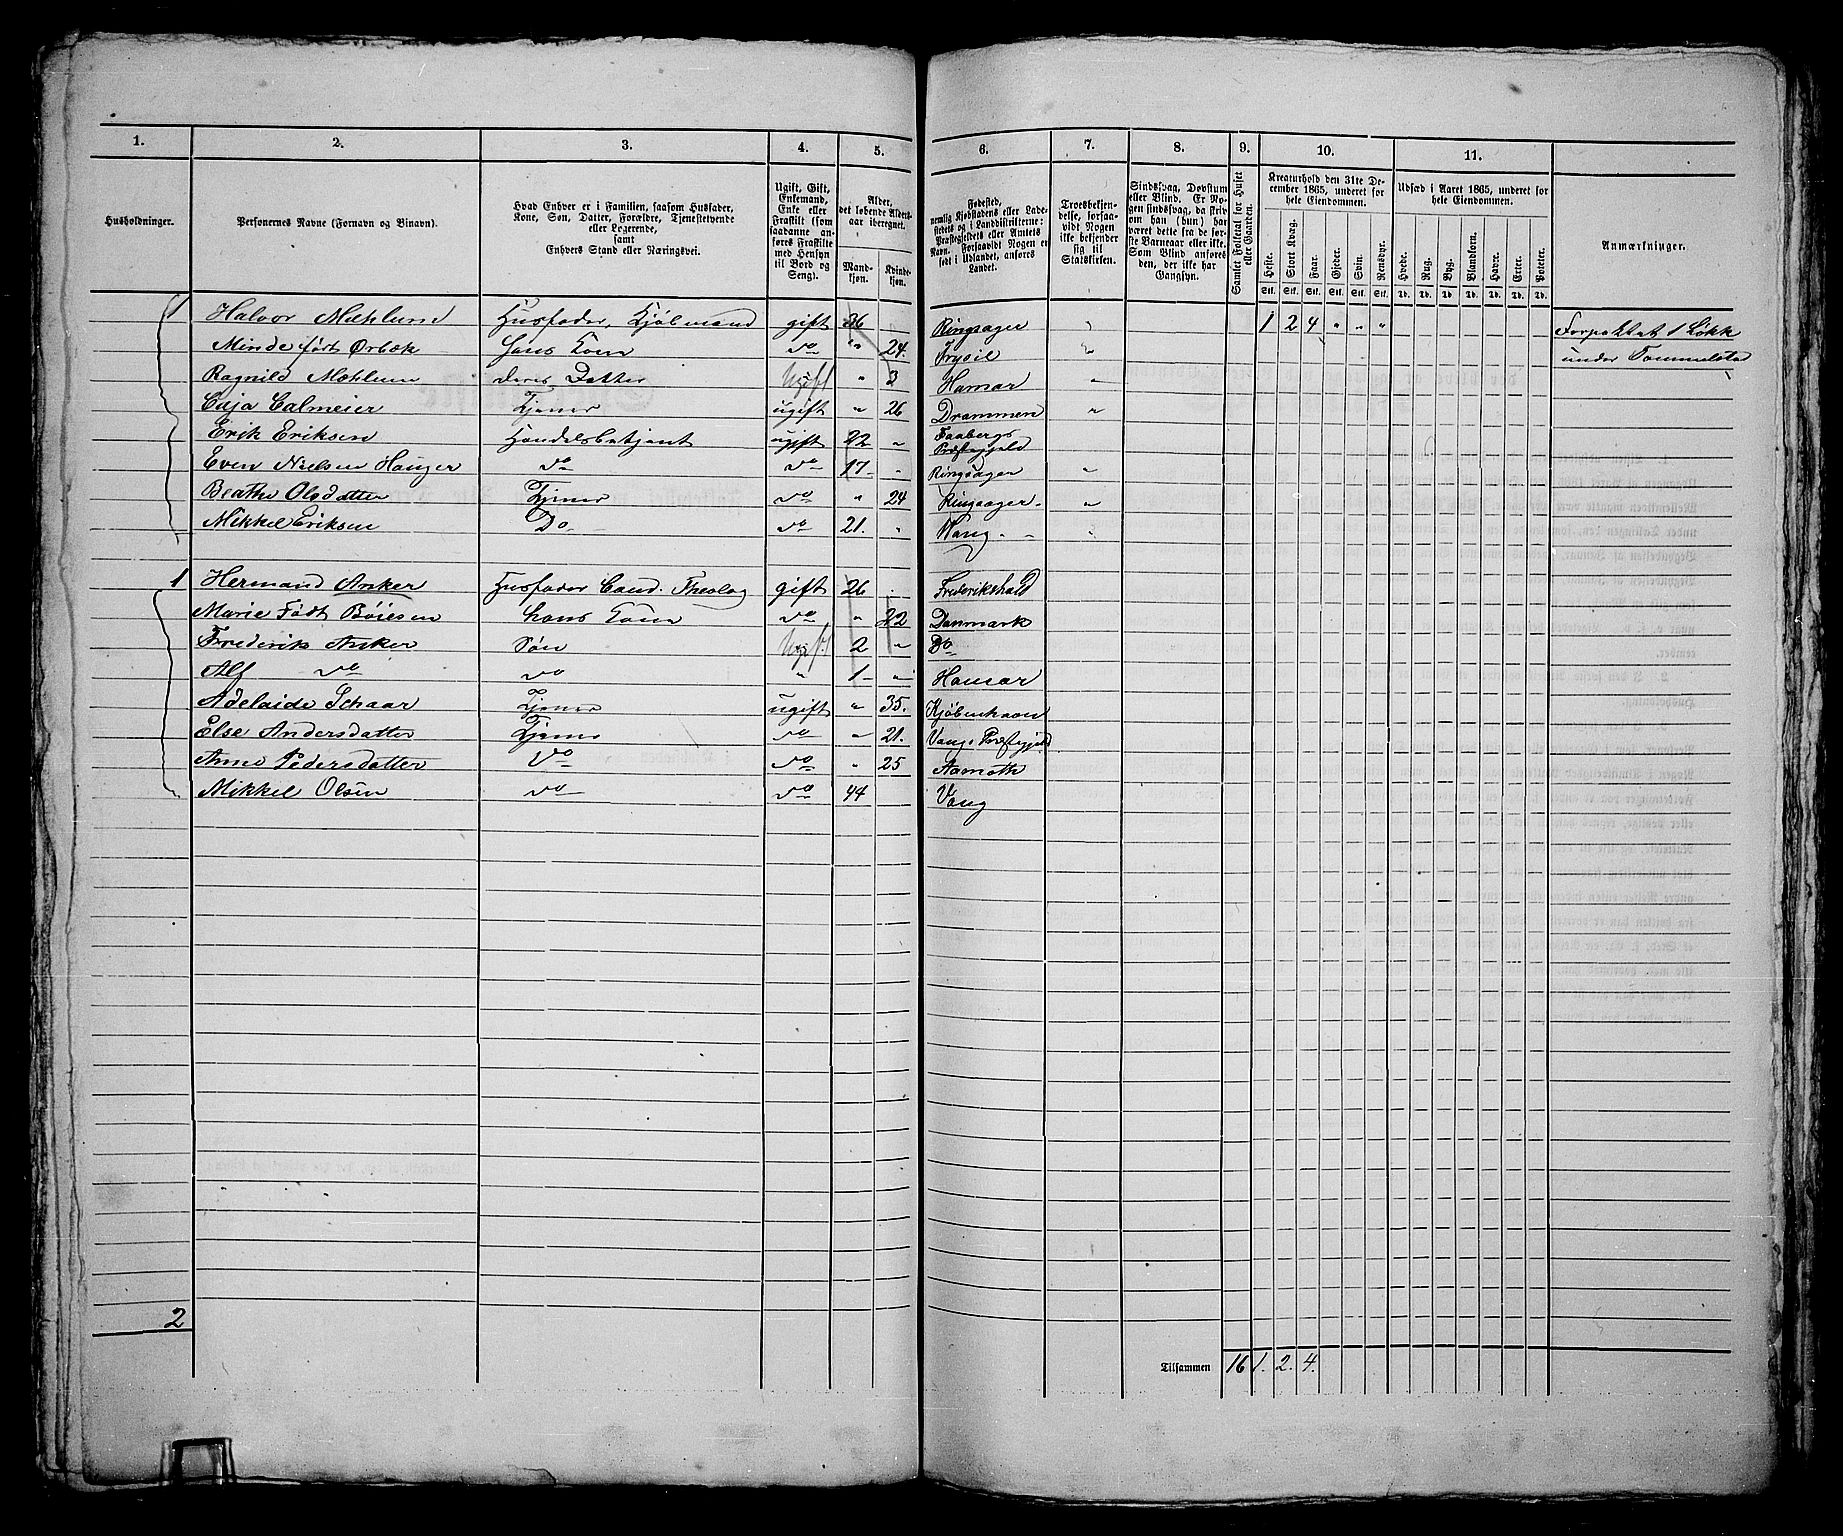 1. 2. 3. 4. 5. 6. 7. 8. 9. 10. 11.
Husholdninger.
Personernes Navne (Fornavn og Binavn).
Hvad Enhver er i Familien, saasom Husfader,
Kone, Søn, Datter, Forældre, Tjenestetyende
eller Logerende,
samt
Enhvers Stand eller Næringsvei.
Ugift, Gift,
Enkemand,
Enke eller
Fraskilt (som
saadanne an-
føres Fraskilte
med Hensyn
til Bord og
Seng).
Alder,
det løbende Alders-
aar iberegnet.
Mand-
kjøn.
Kvinde-
kjøn.
Fødested,
nemlig Kjøbstadens eller Lade-
stedets og i Landdistrikterne:
Præstegjeldets eller Amtets
Navn. Forsaavidt Nogen er
født i Udlandet, anføres
Landet.
Troesbekjen-
delse, forsaa-
vidt Nogen
ikke bekjender
sig til
Statskirken.
Sindssvag, Døvstum
eller Blind. Er No-
gen sindssvag, da skriv
om han (hun) har
været dette fra de før-
ste Barneaar eller ikke.
Som Blind anføres
den, der ikke har
Gangsyn.
Samlet Folketal for Huset
eller Gaarden.
Kreaturhold den 31te De-
cember 1865, underet for
hele Eiendommen.
Heste. Stort Kvæg. Faar. Gjeder. Svin. Rensdyr.
Stk. Stk. Stk. Stk. Stk. Stk.
Udsæd i Aaret 1865, underet for
hele Eiendommen.
Hvede. Rug. Byg. Blandkorn. Havre. Erter. Poteter.
Td. Td. Td. Td. Td. Td. Td.
Anmærkninger.
1 Halvor Mæhlum Husfader, Kjøbmand gift 36 Ringsager " 1 2 4 " " " Forpaktet 1 Løkk
Minde født Ørbæk Hans Kone do " 24. Trysil " under Tommelsta
Ragnild Mæhlum deres Datter Ugift " 3 Hamar "
Caja Calmeier Tjener ugift " 26 Drammen "
Erik Eriksen Handelsbetjent ugift 22 " Faabergs
Præstegjeld
Even Nielsen Hauger do do 17 " Ringsager "
Beathe Olsdatter Tjener do " 24 Ringsager "
Mikkel Eriksen Do do 21. " Vang "
1 Hermand Anker Husfader Cand. Theolog gift 26 Frederikshald
Marie Født Bøiesen hans Kone do " 22 Danmark
Frederik Anker Søn Ugift 2 " Do
Alf do do " 1 " Hamar
Adelaide Schaar Tjener ugift " 35. Kjøbenhavn
Else Andersdatter Tjener do " 21. Vangs Præstegjeld
Anne Pedersdatter Do do " 25 Aamoth
Mikkel Olsen do do 44 Vang
2
Tilsammen 16 1. 2. 4.